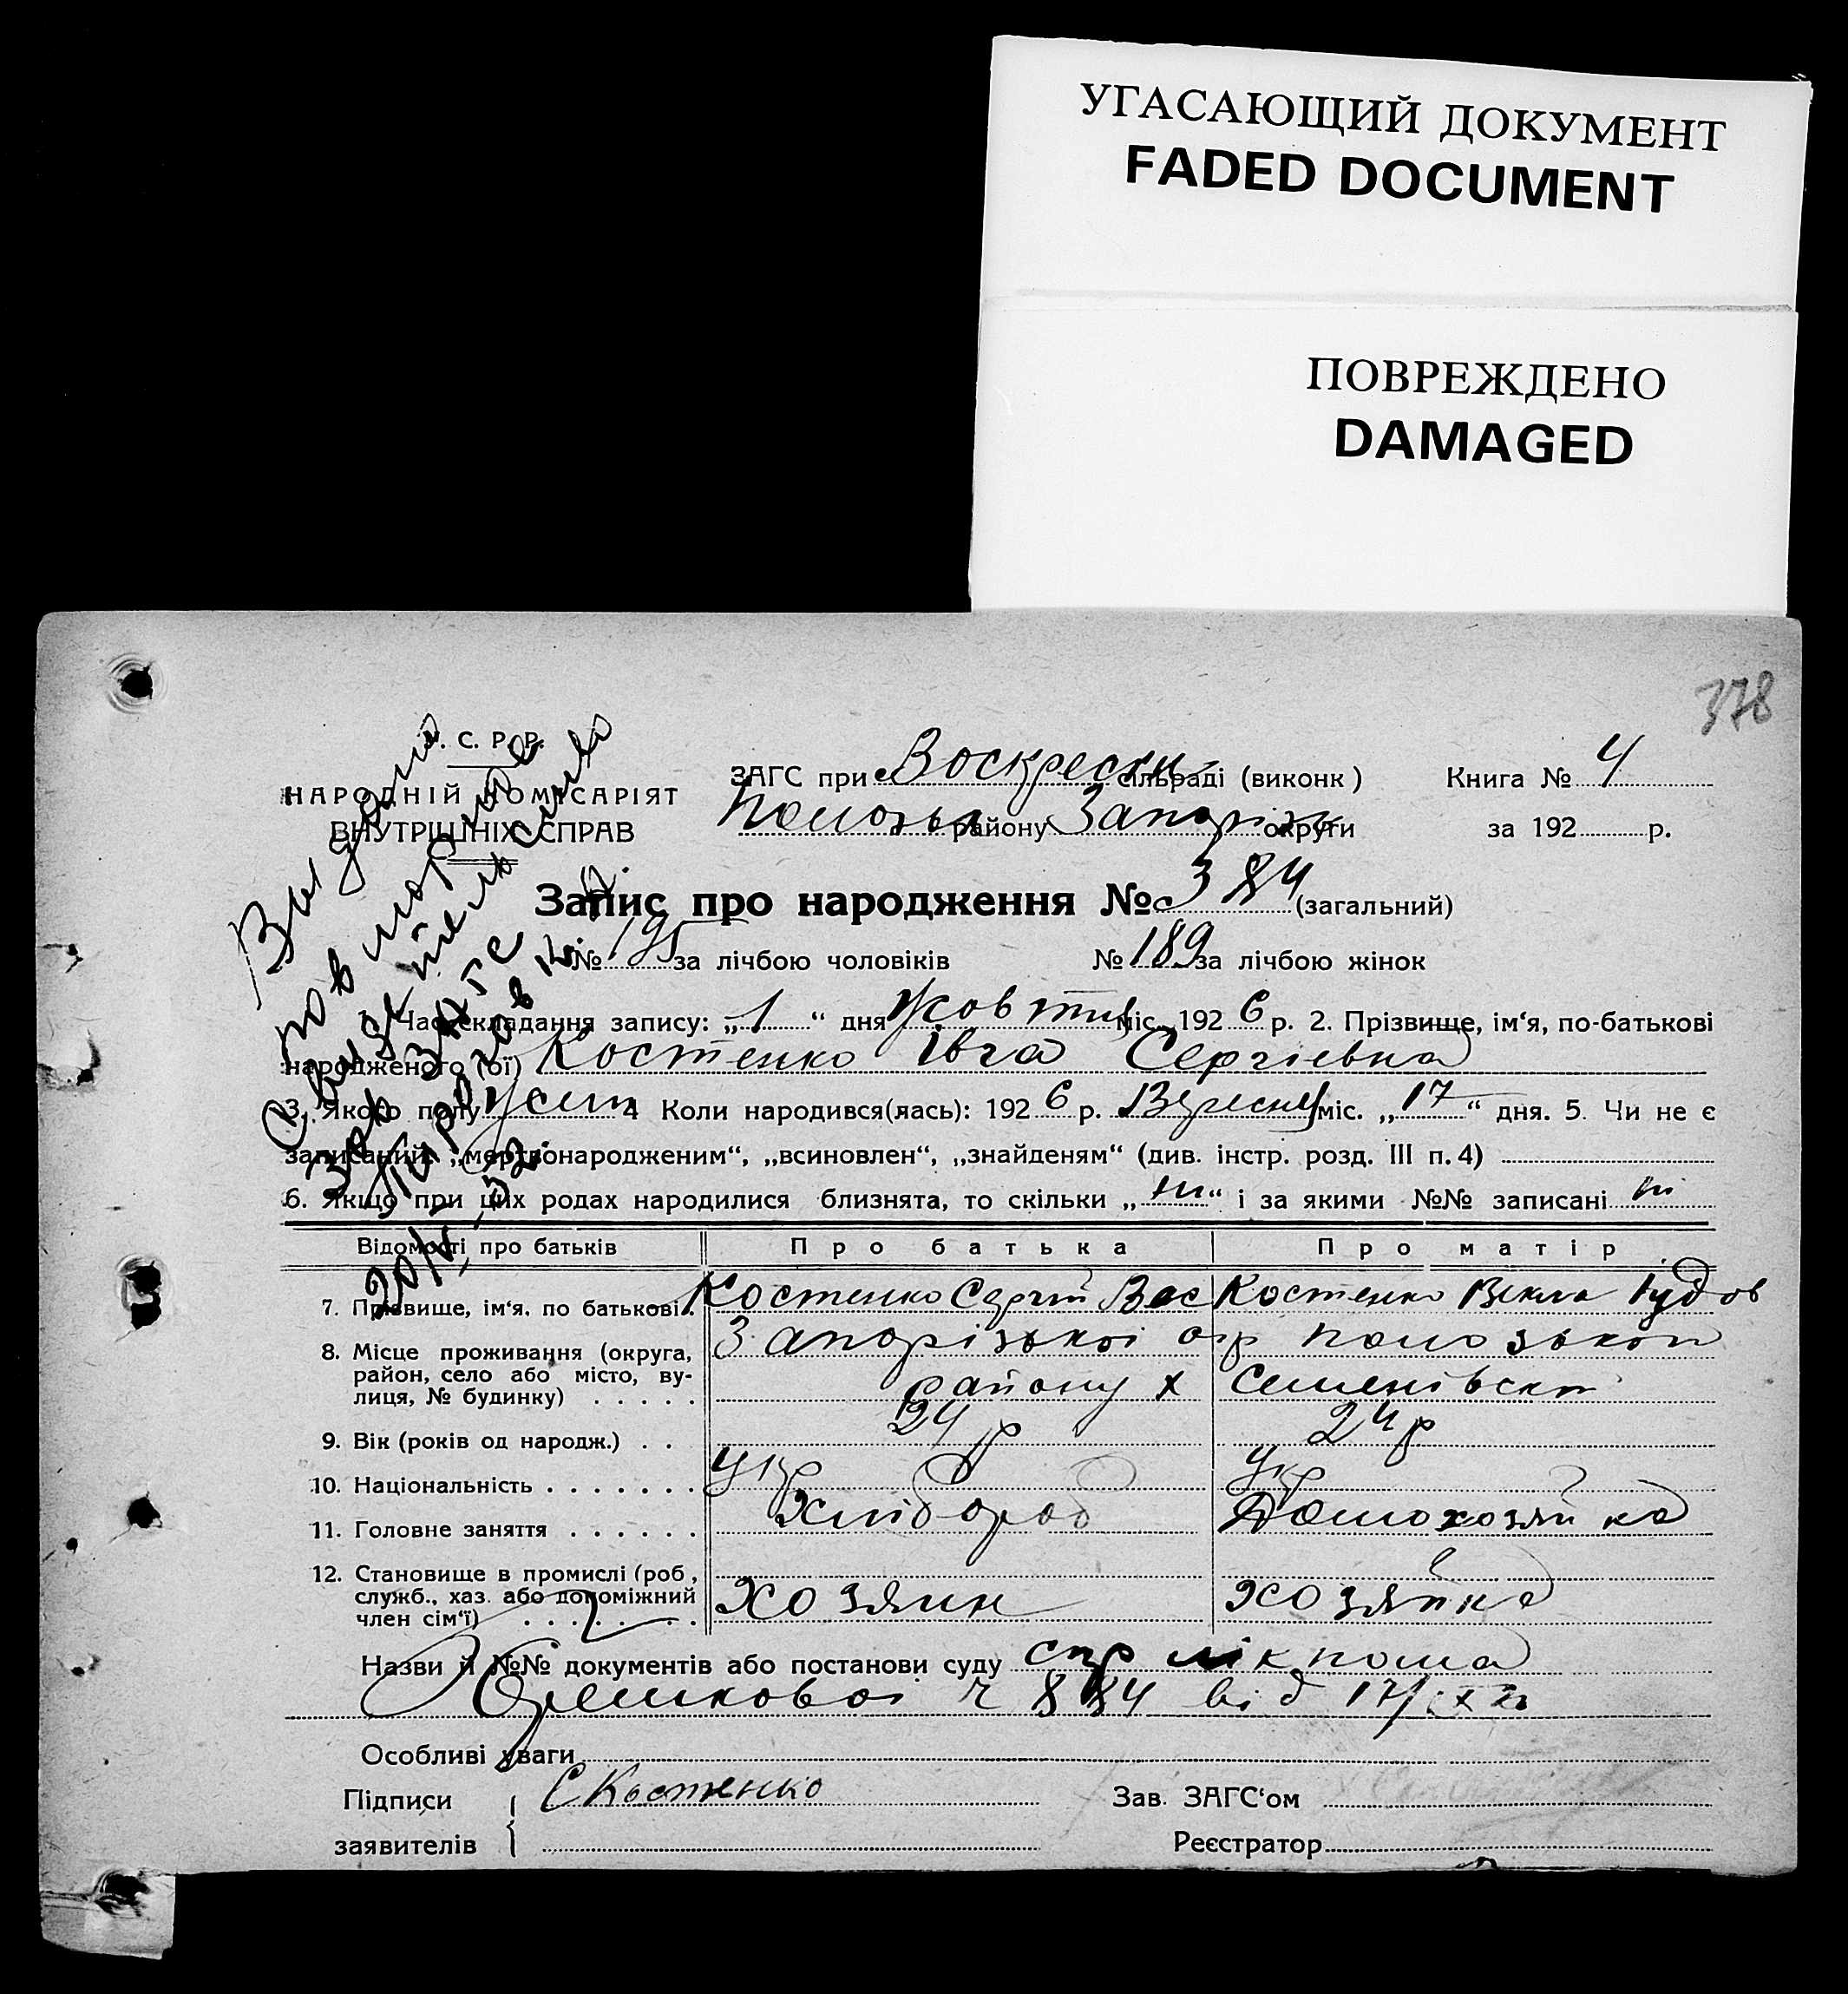 УГАСАЮЩИЙ ДОКУМЕНТ
FADED DOCUMENT
ПОВРЕЖДЕНО
DAMAGED
378
С. Р. Р.
НАРОДНІЙ КОМІСАРІЯТ
ВНУТРІШНІХ СПРАВ
ЗАГС при Воскресен сільраді (виконк) Книга № 4
району Запоріж округи за 192 р.
Запис про народження № 384 (загальний)
№ 195 за лічбою чоловіків № 189 за лічбою жінок
Выдано
повторное
Свидетельство
Зав ЗАГС
20/V-52.
1. Час складання запису: „1“ дня Жовтня міс. 1926 р. 2. Прізвище, ім‘я, по-батькові
народженого (ої) Костенко Івга Сергіевна
3. Якого полу жен 4 Коли народився(лась): 1926 р. Вересня міс. „17“ дня. 5. Чи не є
записаний: „мертвонародженим“, „всиновлен“, „знайденям“ (див. інстр. розд. III п. 4)
6. Якщо при цих родах народилися близнята, то скільки „ні“ і за якими №№ записані ні
Відомості про батьків Про батька Про матір
7. Прізвище, ім‘я. по батькові. Костенко Сергій Вас Костенко Векла Іудов
8. Місце проживання (округа, Запорізької окр пологзької
район, село або місто, ву- району х Семенівскі
лиця, № будинку)
9. Вік (років од народж.) 24 р 24 р
10. Національність укр укр
11. Головне заняття Хлібороб Домохозяйка
12. Становище в промислі (роб,
служб., хаз. або допоміжний хозяин хозяйка
член сім‘ї)
Назви й №№ документів або постанови суду спр лікпома
ч 884 від 17/IX
Особливі уваги
Підписи С Костенко Зав. ЗАГС‘ом
заявителів Реєстратор